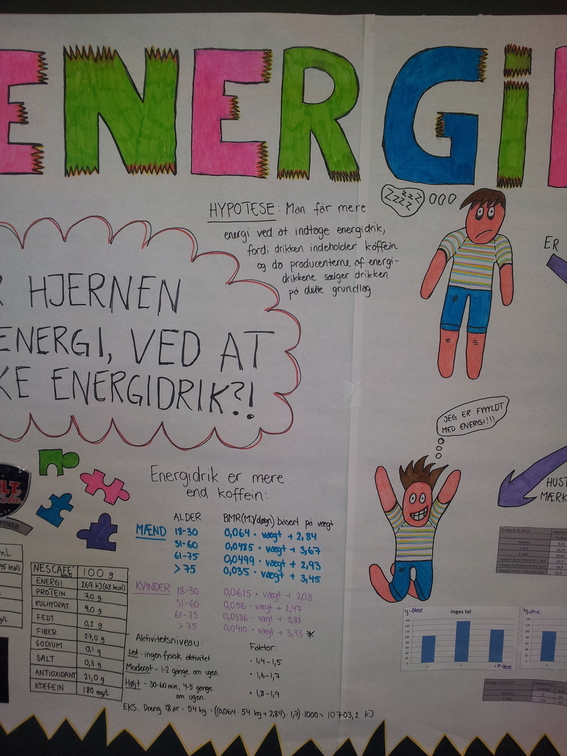 ENERGI
HYPOTESE: Man får mere
energi ved at indtage energidrik,
fordi drikken indeholder koffein
og da producenterne af energi-
drikkene sælger drikken
på dette grundlag
ZZZZ
ZZZ
ER
R HJERNEN
ENERGI, VED AT
KE ENERGIDRIK?!
JEG ER FYYYLDT
MED ENERGI!!!
HUST
MÆRK
Energidrik er mere
end koffein:
ALDER BMR(MJ/døgn) baseret på vægt
MÆND 18-30 0,064 · vægt + 2,84
31-60 0,0485 · vægt + 3,67
61-75 0,0499 · vægt + 2,93
> 75 0,035 · vægt + 3,45
KVINDER 18-30 0,0615 · vægt + 2,08
31-60 vægt +
61-75 vægt +
> 75 0,0410 · vægt + 3,43 *
NESCAFÉ 100 g
ENERGI
PROTEIN 7,0 g
KULHYDRAT 9,0 g
FEDT 0,2 g
FIBER 27,0 g
SODIUM 0,1 g
SALT 0,3 g
ANTIOXIDANT 21,0 g
KOFFEIN 180 mg/L
Aktivitetsniveau: Faktor:
Let - ingen fysisk aktivitet · 1,4-1,5
Moderat - 1-2 gange om ugen · 1,6-1,7
Højt - 30-60 min, 4-5 gange
om ugen · 1,8-1,9
EKS. Dreng 18 år - 54 kg = ((0,064 · 54 kg + 2,84) · 1,7) · 1000 = 10703,2 kJ
y-akse
Ingen tal
x-akse